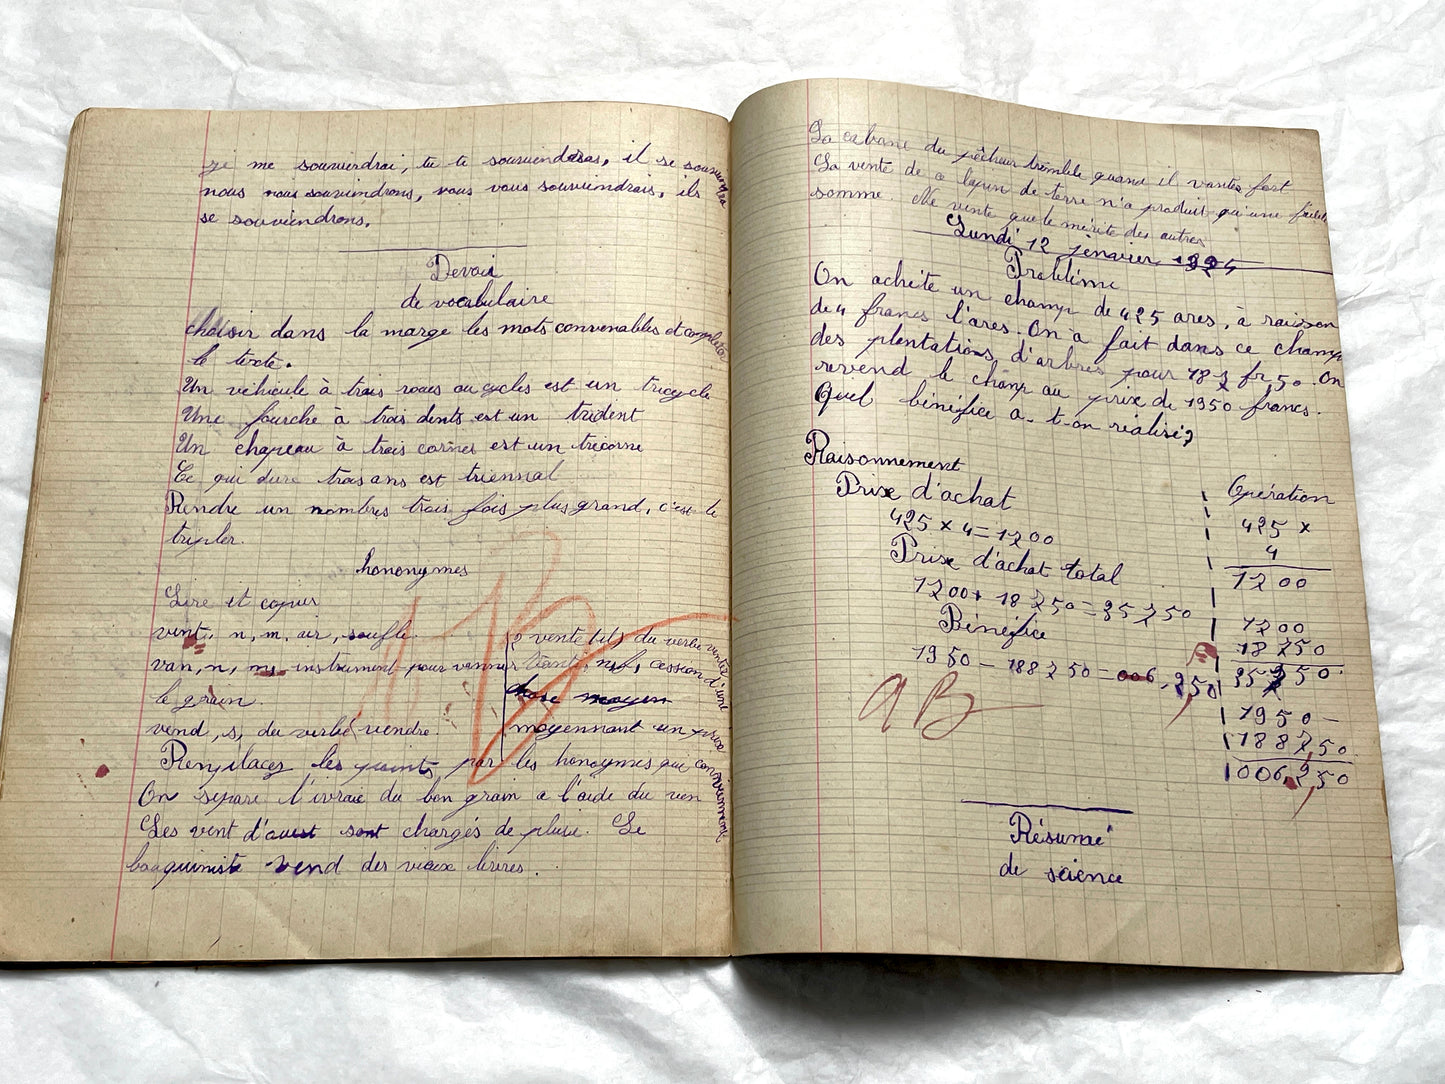 je me souviendrai, tu te souviendras, il se souviendra
nous nous souviendrons, vous vous souviendrais, ils
se souviendrons.
Devoir
de vocabulaire
choisir dans la marge les mots convenables et completer
le texte.
Un véhicule à trois roues ou cycles est un tricycle
Une fourche à trois dents est un trident
Un chapeau à trois cornes est un tricorne
Ce qui dure trois ans est triennal
Rendre un nombres trois fois plus grand, c'est le
tripler.
homonymes
Lire et copier
vent, n, m, air, souffle.
van, n, m, instrument pour vanner
le grain.
vend, s, du verbe vendre.
vente (ut) du verbe venter
Vente, n, f, cession d'une
chose moyen
moyennant un prix
Remplacez les points par les homonymes qui conviennent
On sépare l'ivraie du bon grain a l'aide du van
Les vent d'ouest sont chargés de pluie. Le
bouquiniste vend des vieux livres.
La cabane du pêcheur tremble quand il vantes fort
La vente de ce lopin de terre n'a produit qu'une faible
somme. Ne vente que le mérite des autres
Lundi 12 jenvier 1924
Problème
On achète un champ de 425 ares, à raison
de 4 francs l'ares. On a fait dans ce champ
des plentations d'arbres pour 187 fr 50. On
revend le champ au prix de 1950 francs.
Quel bénéfice a-t-on réalisé?
Raisonnement
Prix d'achat
425 × 4 = 1700
Prix d'achat total
1700 + 18750 = 35750
Bénéfice
1950 - 188750 = 006,250
AB
Opération
425 ×
4
1700
1700
18750
35750
1950 -
188750
006,250
Résumé
de science